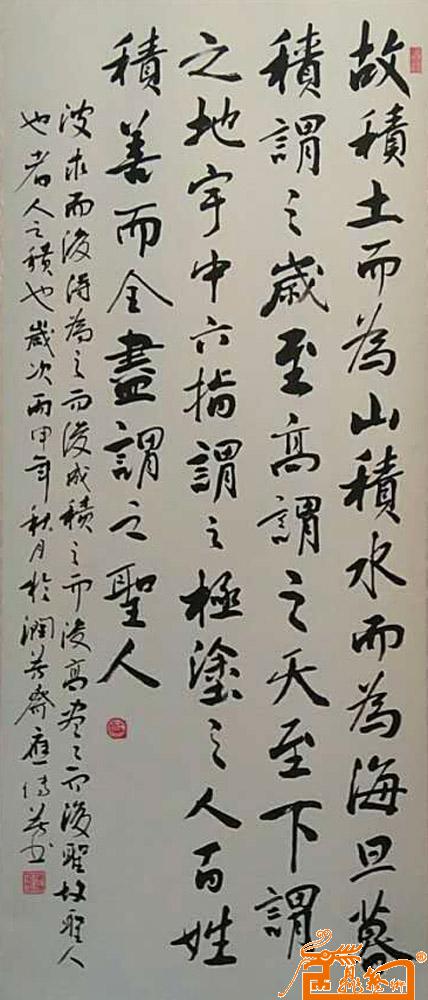 故積土而為山積水而為海旦暮
積謂之歲至高謂之天至下謂
之地宇中六指謂之極塗之人百姓
積善而全盡謂之聖人
彼求而後得為之而後成積之而後高尽之而後聖故聖人
也者人之積也歲次丙申年秋月於潤芳齋應书